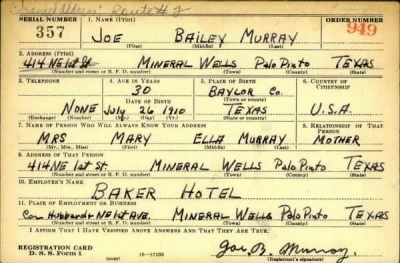 Changed Address: Route # 2
SERIAL NUMBER 1. NAME (Print) ORDER NUMBER
357 JOE BAILEY MURRAY 949
(First) (Middle) (Last)
2. ADDRESS (Print)
414 NE 1st St MINERAL WELLS Palo Pinto TEXAS
(Number and street or R. F. D. number) (Town) (County) (State)
3. TELEPHONE 4. AGE IN YEARS 5. PLACE OF BIRTH 6. COUNTRY OF CITIZENSHIP
30 BAYLOR Co.
DATE OF BIRTH (Town or county)
NONE July 26 1910 TEXAS U.S.A.
(Exchange) (Number) (Mo.) (Day) (Yr.) (State or country)
7. NAME OF PERSON WHO WILL ALWAYS KNOW YOUR ADDRESS 8. RELATIONSHIP OF THAT PERSON
MRS MARY ELLA MURRAY MOTHER
(Mr., Mrs., Miss) (First) (Middle) (Last)
9. ADDRESS OF THAT PERSON
414 NE 1st St. MINERAL WELLS Palo Pinto TEXAS
(Number and street or R. F. D. number) (Town) (County) (State)
10. EMPLOYER'S NAME
BAKER HOTEL
11. PLACE OF EMPLOYMENT OR BUSINESS
Cor Hubbard & NE 1st AVE. MINERAL WELLS Palo Pinto TEXAS
(Number and street or R. F. D. number) (Town) (County) (State)
I AFFIRM THAT I HAVE VERIFIED ABOVE ANSWERS AND THAT THEY ARE TRUE.
REGISTRATION CARD
D. S. S. Form 1 16-17105 Joe B. Murray
(over) (Registrant's signature)